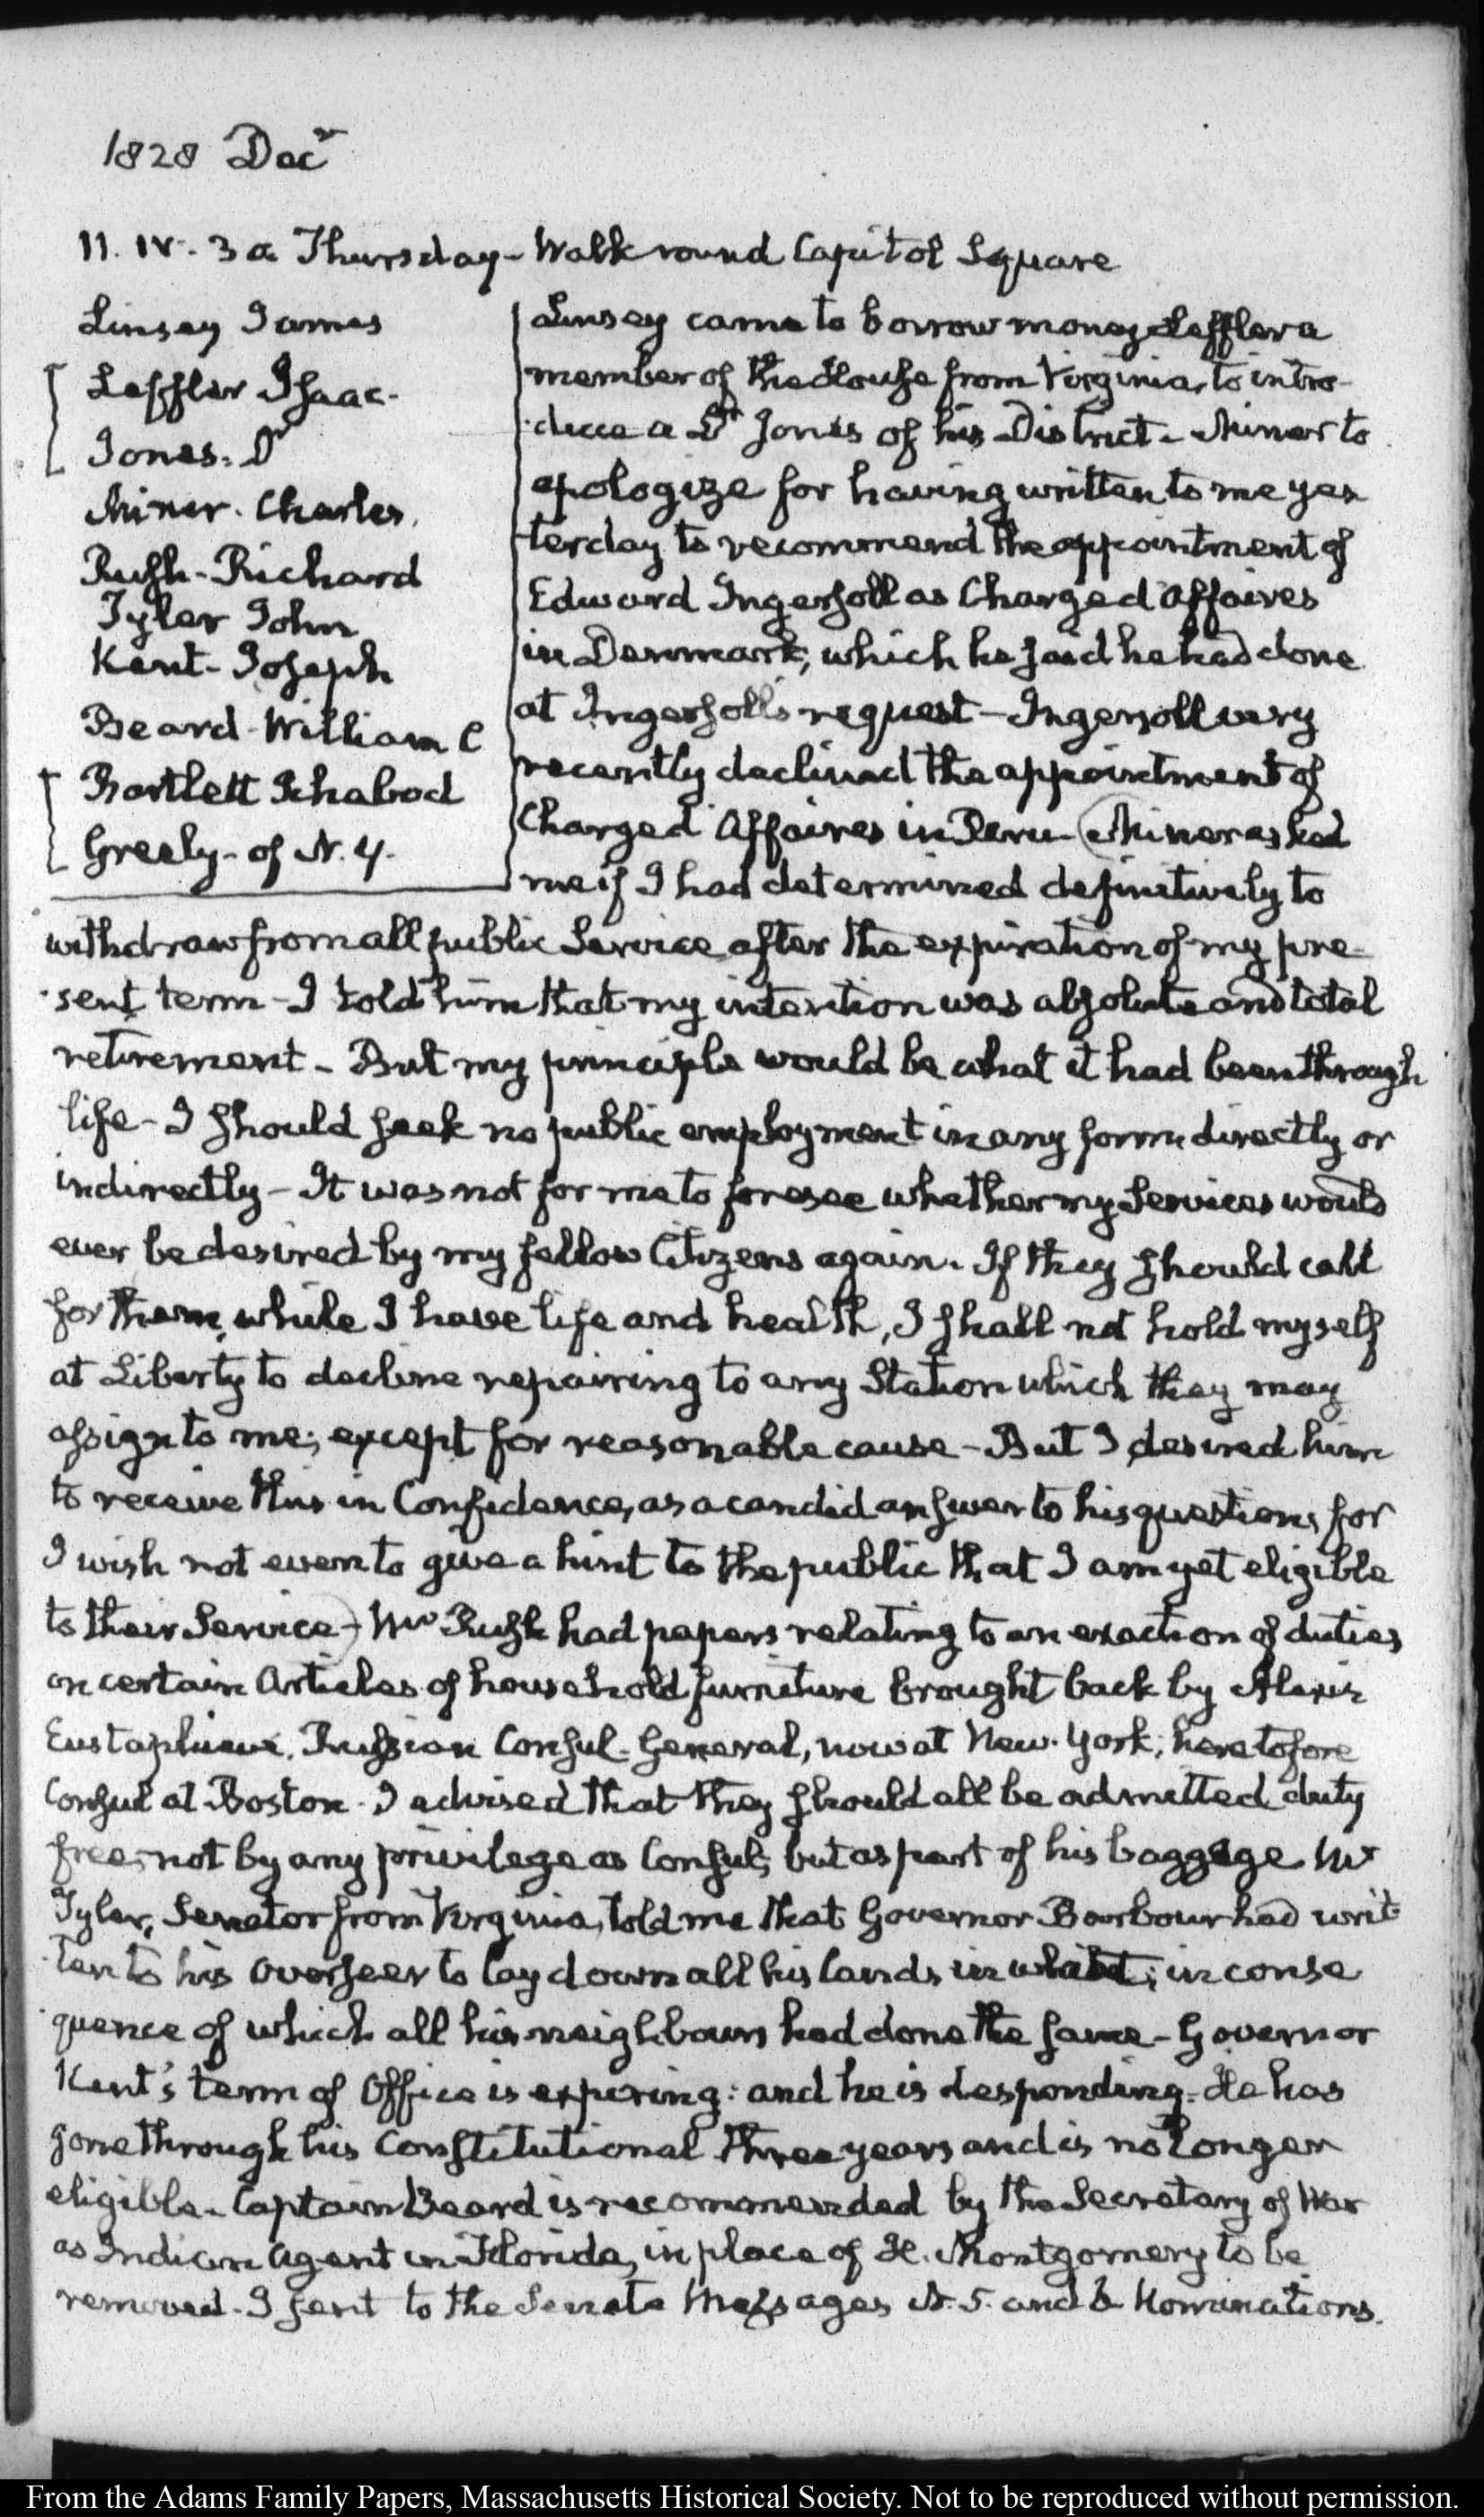 1828 Decr
11. IV. 3a Thursday - Walk round Capitol Square
Linsey James
Leffler Isaac.
Jones. Dr
Miner. Charles.
Rush - Richard
Tyler John
Kent - Joseph
Beard - William C
Bartlett Ichabod
Greely - of N. Y.
Linsey came to borrow money Leffler a
member of the House from Virginia, to intro-
duce a Dr Jones of his District - Miner to
apologize for having written to me yes
terday to recommend the appointment of
Edward Ingersoll as Charged Affaires
in Denmark, which he said he had done
at Ingersoll's request - Ingersoll very
recently declined the appointment of
Charged Affaires in Peru - Miner asked
me if I had determined definitively to
withdraw from all public Service after the expiration of my pre-
sent term - I told him that my intention was absolute and total
retirement - But my principle would be what it had been through
life - I should seek no public employment in any form directly or
indirectly - It was not for me to foresee whether my Services would
ever be desired by my fellow Citizens again. If they should call
for them, while I have life and health, I shall not hold myself
at Liberty to decline repairing to any Station which they may
assign to me; except for reasonable cause - But I desired him
to receive this in Confidence, as a candid answer to his question; for
I wish not even to give a hint to the public that I am yet eligible
to their Service - Mr Rush had papers relating to an exaction of duties
on certain Articles of household furniture brought back by Alexis
Eustaphieve, Russian Consul-General, now at New-York; heretofore
Consul at Boston. I advised that they should all be admitted duty
free, not by any privilege as Consul; but as part of his baggage Mr
Tyler, Senator from Virginia, told me that Governor Barbour had writ
ten to his Overseer to lay down all his lands in wheat; in conse
quence of which all his neighbours had done the same - Governor
Kent's term of Office is expiring: and he is desponding. He has
gone through his Constitutional three years and is no longer
eligible. Captain Beard is recommended by the Secretary of War
as Indian Agent in Florida, in place of H. Montgomery to be
removed. I sent to the Senate Messages N. 5. and 6 Nominations.
From the Adams Family Papers, Massachusetts Historical Society. Not to be reproduced without permission.